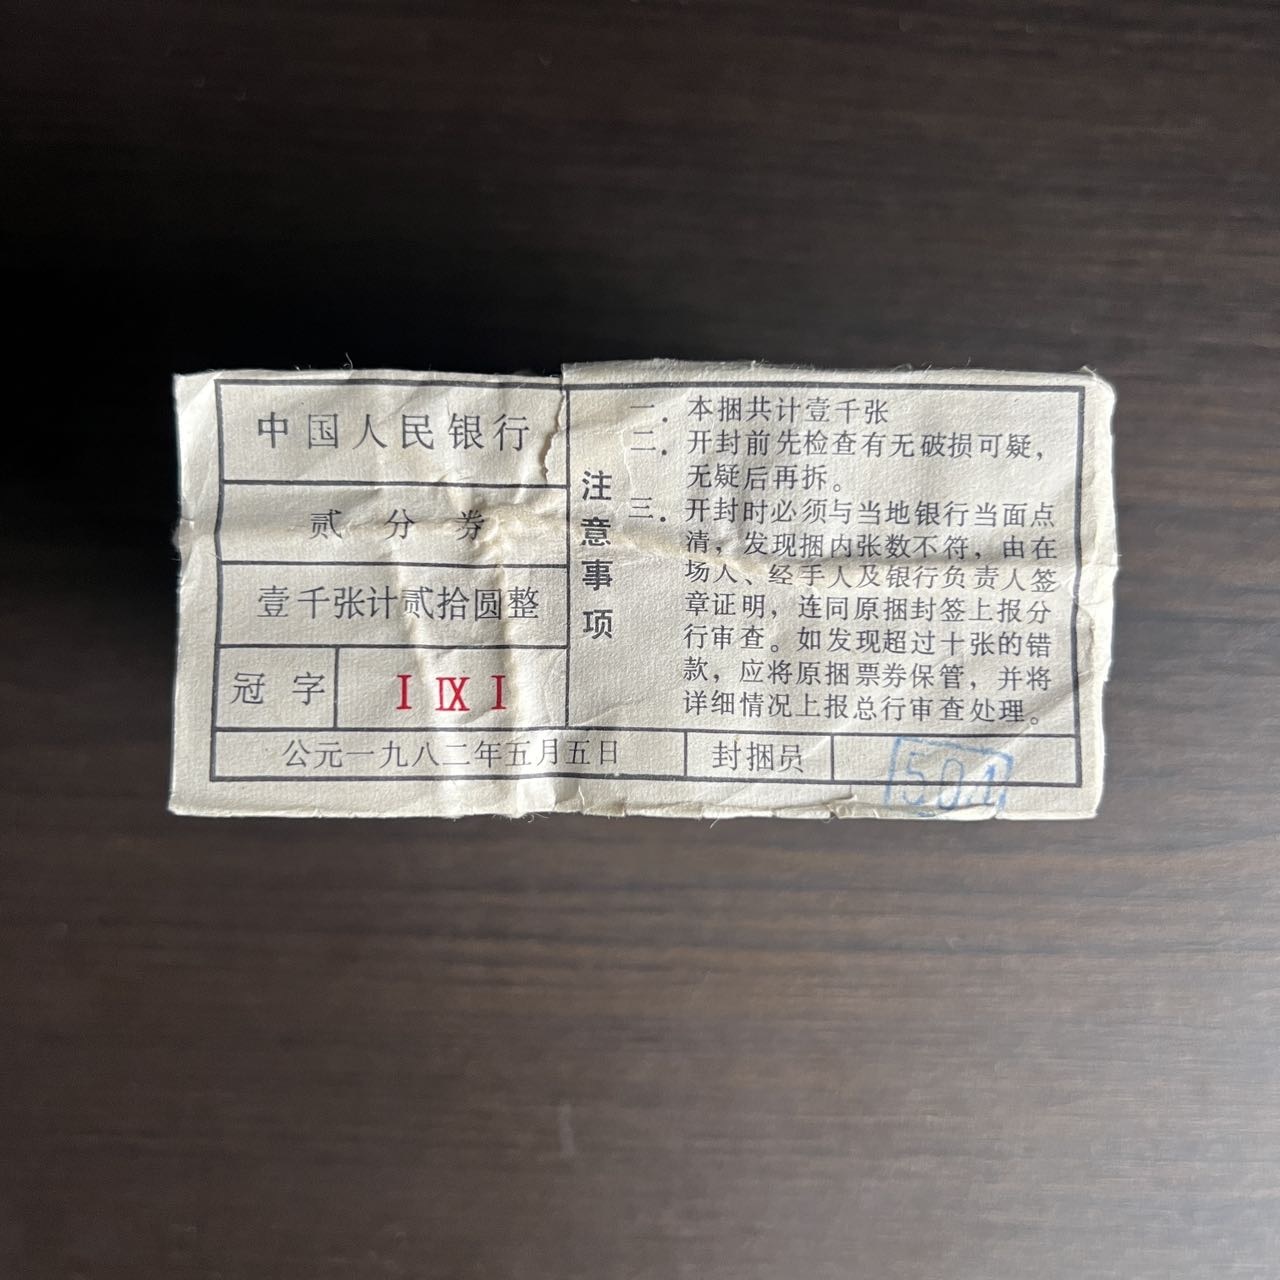 中国人民银行
贰分券
壹千张计贰拾圆整
冠字
I IX I
注意事项
一．本捆共计壹千张
二．开封前先检查有无破损可疑，
无疑后再拆。
三．开封时必须与当地银行当面点
清，发现捆内张数不符，由在
场人、经手人及银行负责人签
章证明，连同原捆封签上报分
行审查。如发现超过十张的错
款，应将原捆票券保管，并将
详细情况上报总行审查处理。
公元一九八二年五月五日
封捆员